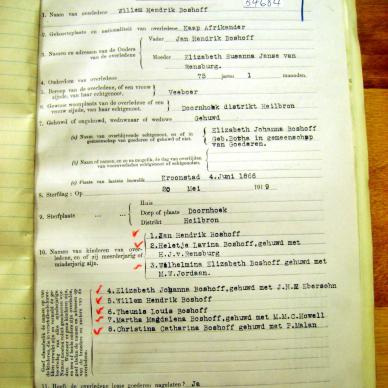 54684
1. Naam van overledene Willem Hendrik Boshoff
2. Geboorteplaats en nationaliteit van overledene Kaap Afrikander
3. Namen en adressen van de Ouders van de overledene
Vader Jan Hendrik Boshoff
Moeder Elizabeth Susanna Janse van Rensburg.
4. Ouderdom van overledene 75 jaren 1 maanden.
5. Beroep van de overledene, of een vrouw zijnde, van haar echtgenoot. Veeboer
6. Gewone woonplaats van de overledene of een vrouw zijnde, van haar echtgenoot. Doornhoek distrikt Heilbron
7. Gehuwd of ongehuwd, weduwnaar of weduwe Gehuwd
(a) Naam van overblijvende echtgenoot, en of in gemeenschap van goederen gehuwd of niet.
Elizabeth Johanna Boshoff
Geb.Botha in gemeenschap
van Goederen.
(c) Plaats van laatste huwelik Kroonstad 4.Juni 1866
8. Sterfdag: Op 20 Mei 1919
9. Sterfplaats
Huis
Dorp of plaats Doornhoek
Distrikt Heilbron
10. Namen van kinderen van overledene, en of zij meerderjarig of minderjarig zijn.
1.Jan Hendrik Boshoff
2.Heletje Lavina Boshoff,gehuwd met
H.J.v.Rensburg
3.Wilhelmina Elizabeth Boshoff,gehuwd met
M.W.Jordaan.
4.Elizabeth Johanna Boshoff,gehuwd met J.H.M Ebersohn
5.Willem Hendrik Boshoff
6.Theunis Louis Boshoff
7.Martha Magdalena Boshoff,gehuwd met M.M.C.Howell
8.Christina Catharina Boshoff,gehuwd met P.Malan
11. Heeft de overledene losse goederen nagelaten? Ja